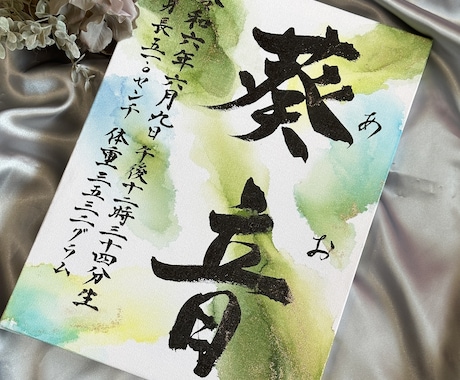 葵音
あお
令和六年六月九日午後十二時三十四分生
身長 センチ 体重三五三二グラム